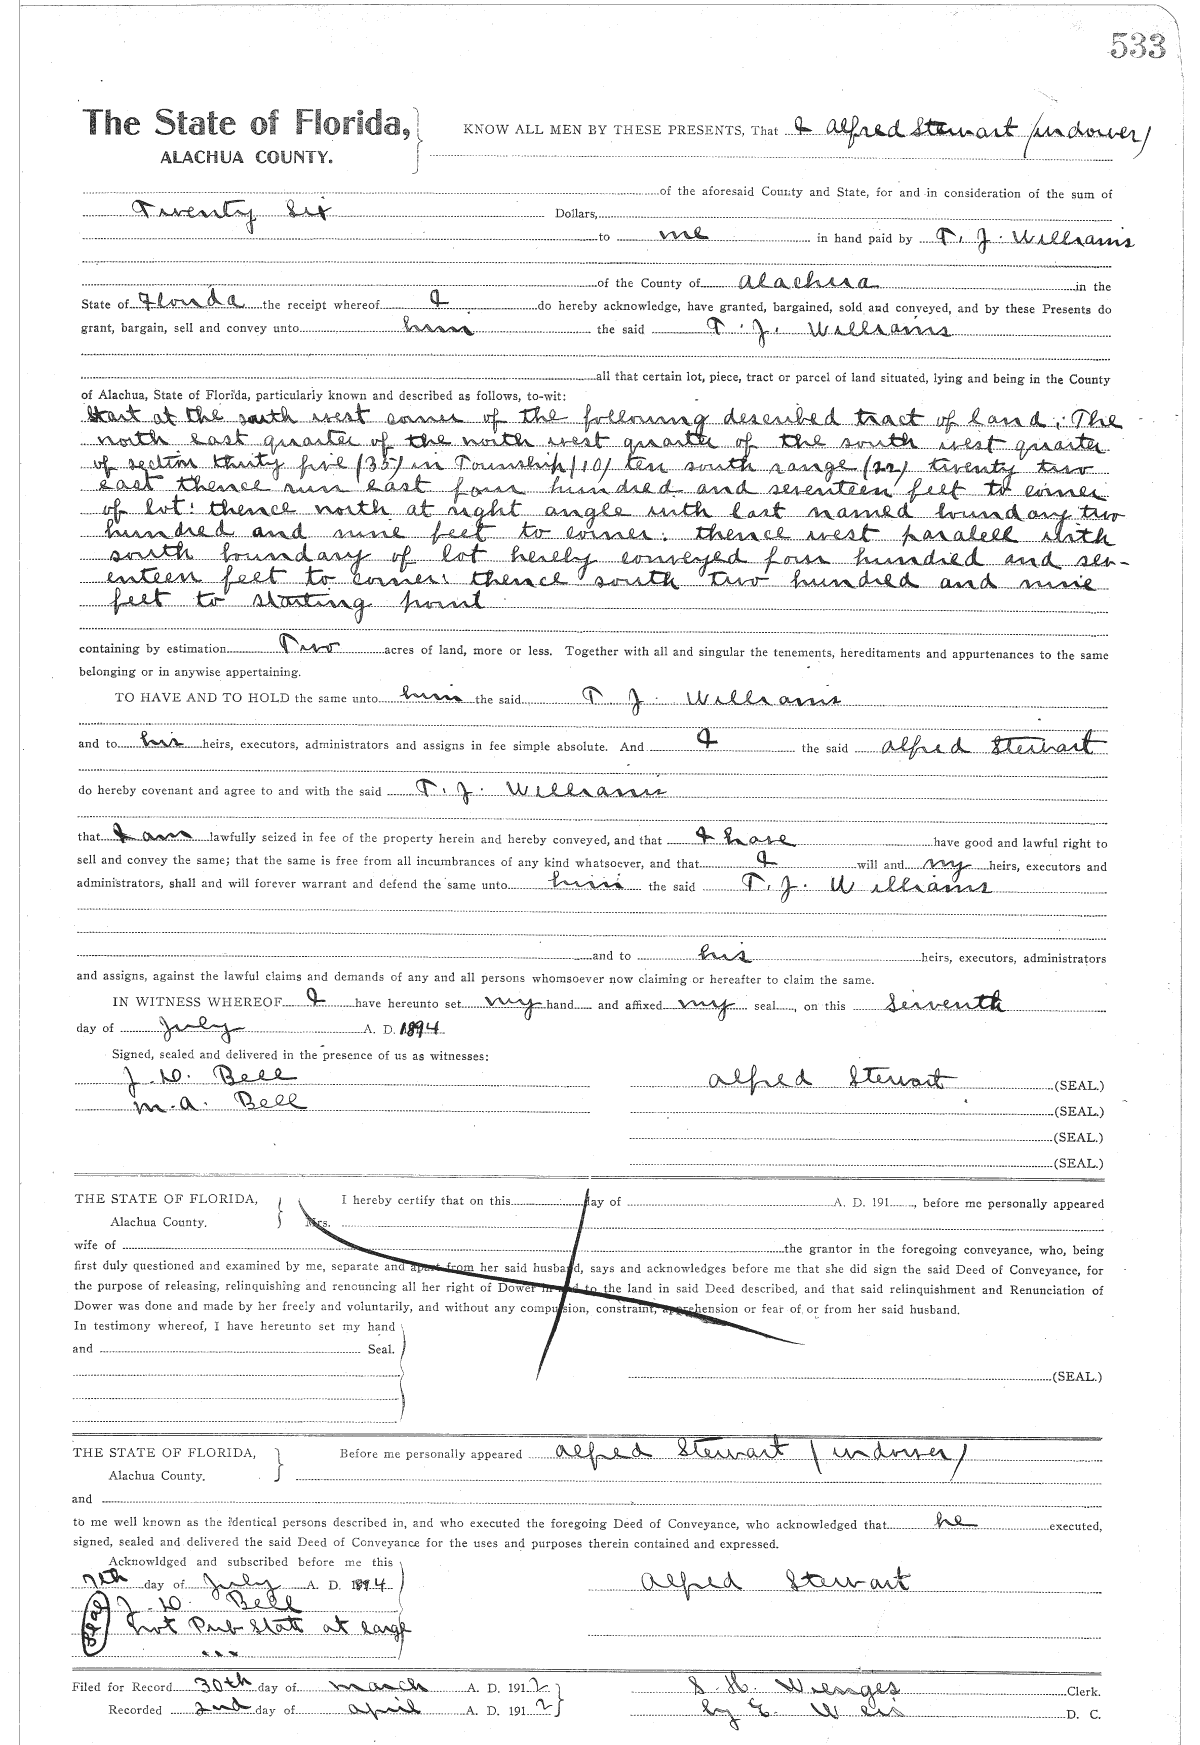 533
The State of Florida,
ALACHUA COUNTY.
KNOW ALL MEN BY THESE PRESENTS, That I Alfred Stewart (widower)
of the aforesaid County and State, for and in consideration of the sum of
Twenty Six Dollars,
to me in hand paid by T. J. Williams
of the County of Alachua in the
State of Florida the receipt whereof I do hereby acknowledge, have granted, bargained, sold and conveyed, and by these Presents do
grant, bargain, sell and convey unto him the said T. J. Williams
all that certain lot, piece, tract or parcel of land situated, lying and being in the County
of Alachua, State of Florida, particularly known and described as follows, to-wit:
Start at the south west corner of the following described tract of land; The
north east quarter of the north west quarter of the south west quarter
of section thirty five (35) in Township (10) ten south range (22) twenty two
east thence run east four hundred and seventeen feet to corner
of lot: thence north at right angle with last named boundary two
hundred and nine feet to corner: thence west paralell with
south boundary of lot hereby conveyed four hundred and sev-
enteen feet to corner: thence south two hundred and nine
feet to starting point
containing by estimation Two acres of land, more or less. Together with all and singular the tenements, hereditaments and appurtenances to the same
belonging or in anywise appertaining.
TO HAVE AND TO HOLD the same unto him the said T J. Williams
and to his heirs, executors, administrators and assigns in fee simple absolute. And I the said Alfred Stewart
do hereby covenant and agree to and with the said T. J. Williams
that I am lawfully seized in fee of the property herein and hereby conveyed, and that I have have good and lawful right to
sell and convey the same; that the same is free from all incumbrances of any kind whatsoever, and that I will and my heirs, executors and
administrators, shall and will forever warrant and defend the same unto him the said T. J. Williams
and to his heirs, executors, administrators
and assigns, against the lawful claims and demands of any and all persons whomsoever now claiming or hereafter to claim the same.
IN WITNESS WHEREOF I have hereunto set my hand and affixed my seal, on this Seventh
day of July A. D. 1894
Signed, sealed and delivered in the presence of us as witnesses:
J. D. Bell
Alfred Stewart (SEAL.)
M. A. Bell
(SEAL.)
(SEAL.)
(SEAL.)
THE STATE OF FLORIDA, I hereby certify that on this day of A. D. 191, before me personally appeared
Alachua County. Mrs.
wife of the grantor in the foregoing conveyance, who, being
first duly questioned and examined by me, separate and apart from her said husband, says and acknowledges before me that she did sign the said Deed of Conveyance, for
the purpose of releasing, relinquishing and renouncing all her right of Dower in and to the land in said Deed described, and that said relinquishment and Renunciation of
Dower was done and made by her freely and voluntarily, and without any compulsion, constraint, apprehension or fear of or from her said husband.
In testimony whereof, I have hereunto set my hand
and Seal.
(SEAL.)
THE STATE OF FLORIDA, Before me personally appeared Alfred Stewart (widower)
Alachua County.
and
to me well known as the identical persons described in, and who executed the foregoing Deed of Conveyance, who acknowledged that he executed,
signed, sealed and delivered the said Deed of Conveyance for the uses and purposes therein contained and expressed.
Acknowldged and subscribed before me this
7th day of July A. D. 1894
Alfred Stewart
J. D. Bell
Seal
Not Pub State at large
Filed for Record 30th day of March A. D. 1912
S. H. Wienges Clerk.
Recorded 2nd day of April A. D. 1912
by E. Weis D. C.